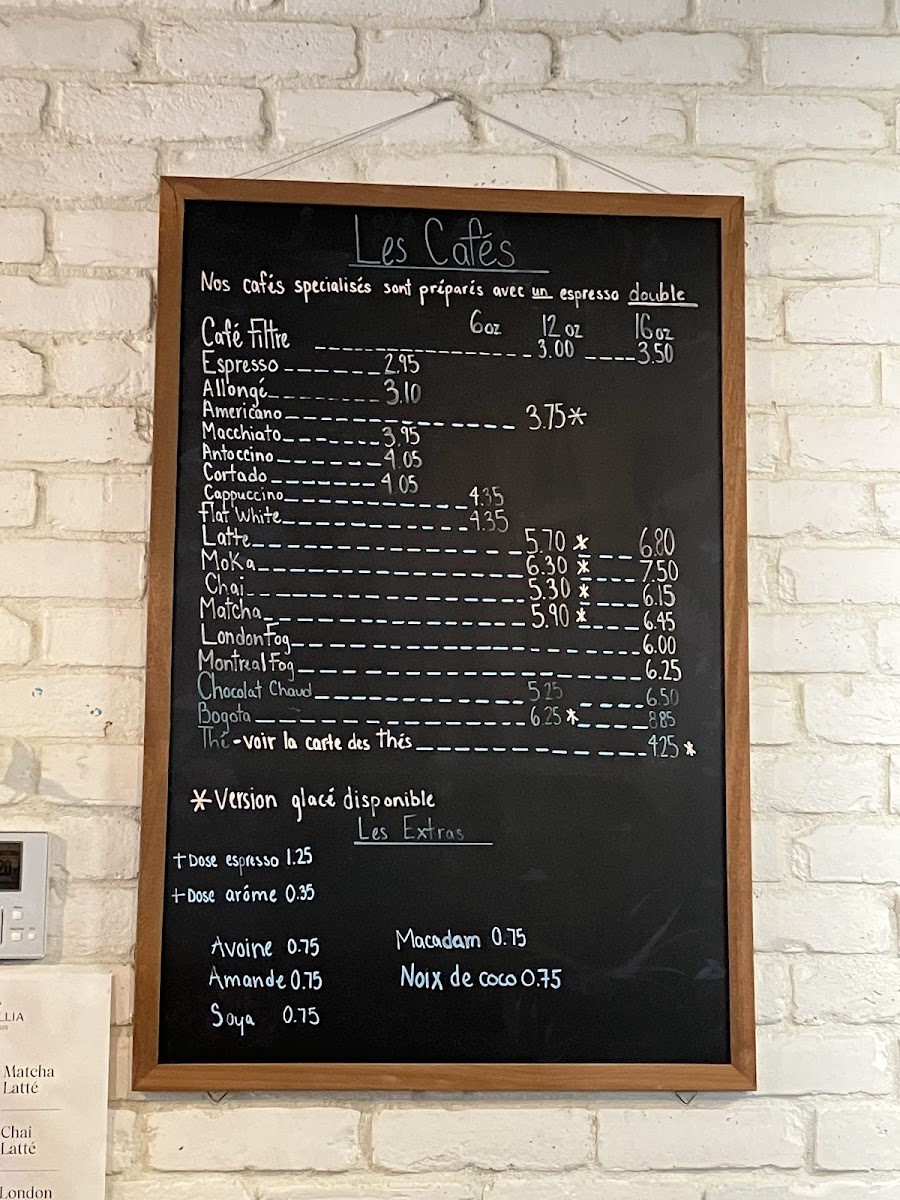 Les Cafés
Nos cafés specialisés sont préparés avec un espresso double
6oz 12 oz 16 oz
Café Filtre 3.00 3.50
Espresso 2.95
Allongé 3.10
Americano 3.75*
Macchiato 3.95
Antoccino 4.05
Cortado 4.05
Cappuccino 4.35
Flat White 4.35
Latte 5.70 * 6.80
Moka 6.30 * 7.50
Chai 5.30 * 6.15
Matcha 5.90 * 6.45
London Fog 6.00
Montreal Fog 6.25
Chocolat Chaud 5.25 6.50
Bogota 6.25 * 8.85
Thé - voir la carte des thés 4.25 *
* Version glacé disponible
Les Extras
+ Dose espresso 1.25
+ Dose aróme 0.35
Avoine 0.75 Macadam 0.75
Amande 0.75 Noix de coco 0.75
Soya 0.75
Matcha
Latté
Chai
Latté
London